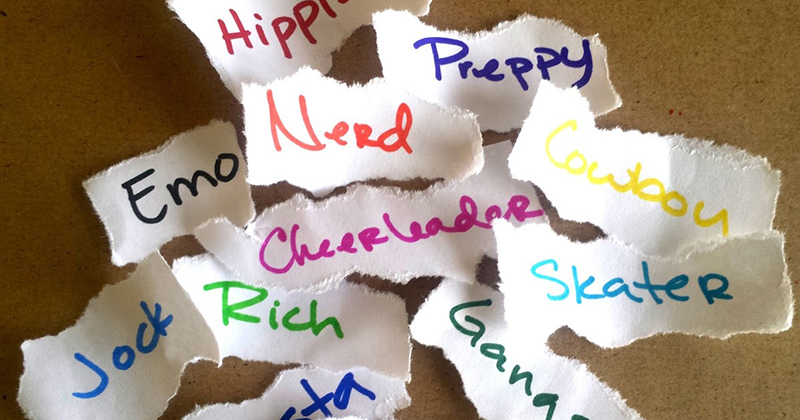 Hippi
Preppy
Nerd
Cowboy
Emo
Cheerleader
Skater
Rich
Jock
Gang
sta